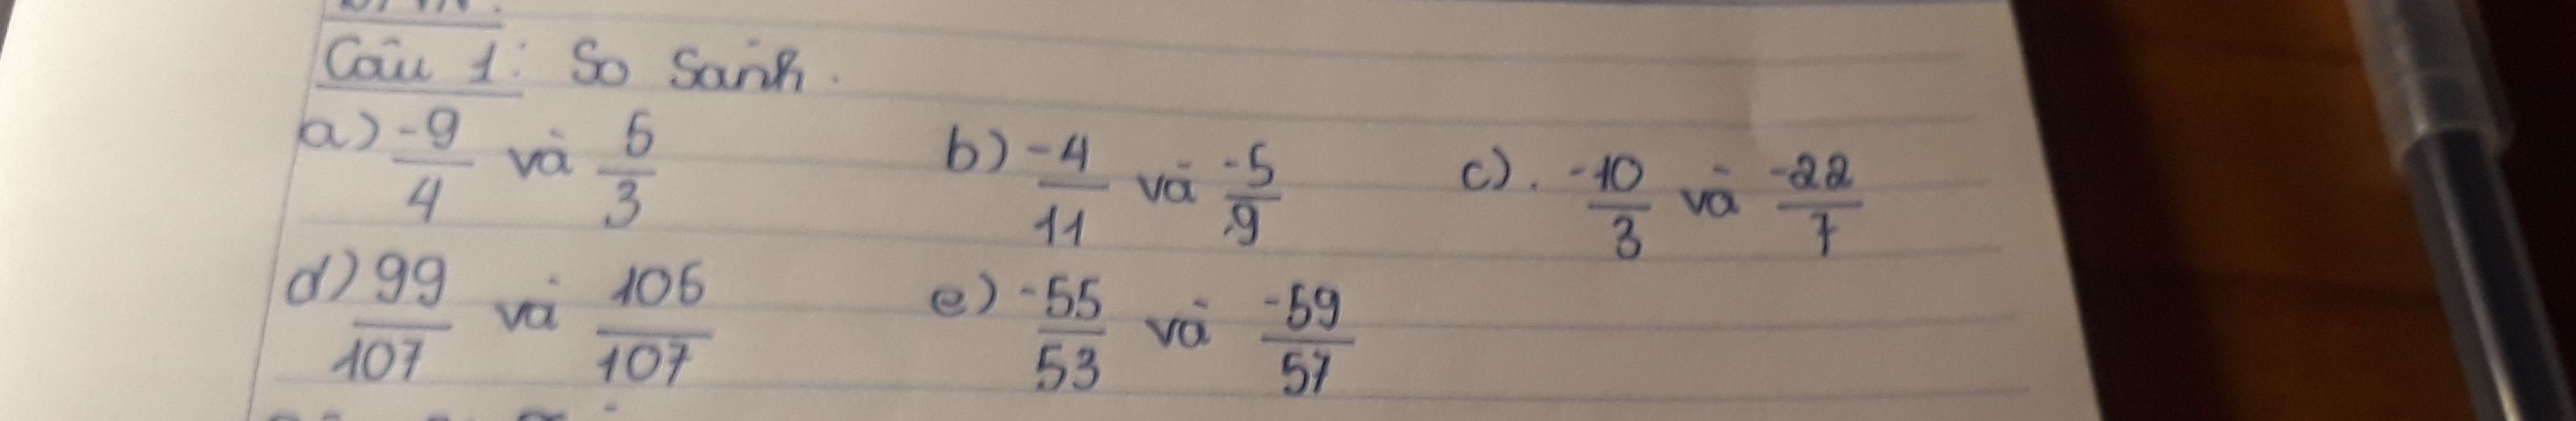 Câu 1: So sánh.
a) -9/4 và 5/3 b) -4/11 và -5/9 c). -10/3 và -22/7
d) 99/107 và 105/107 e) -55/53 và -59/57